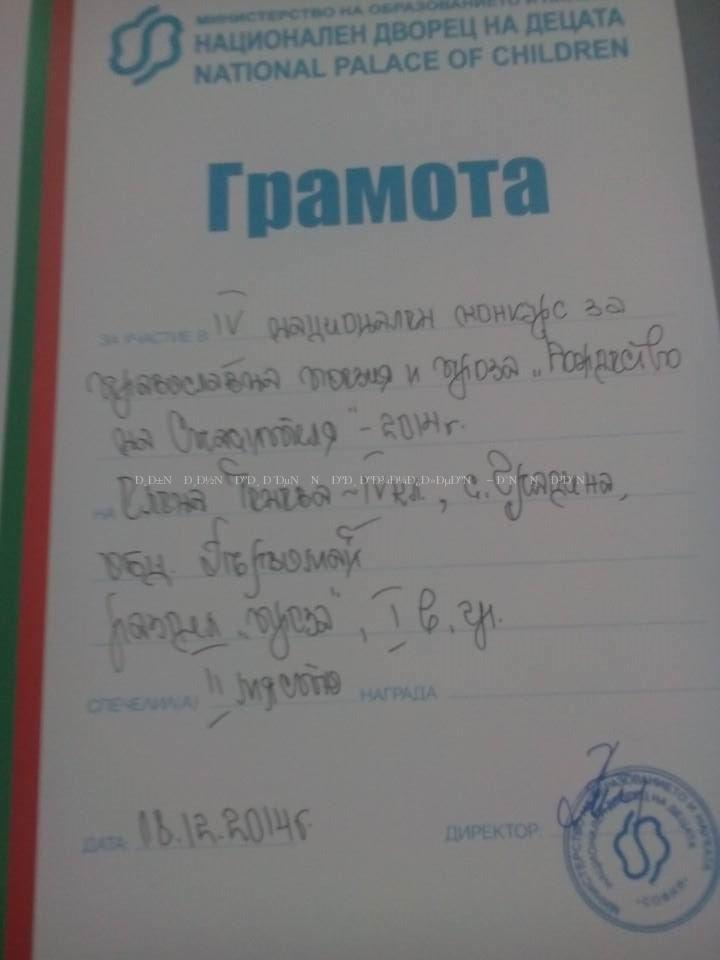 МИНИСТЕРСТВО НА ОБРАЗОВАНИЕТО И НАУКАТА
НАЦИОНАЛЕН ДВОРЕЦ НА ДЕЦАТА
NATIONAL PALACE OF CHILDREN
Грамота
ЗА УЧАСТИЕ В IV национален конкурс за
православна поезия и проза „Рождество
на Спасителя" - 2014 г.
НА Елена - IV кл., с. Градина,
общ. Първомай
раздел „проза", I в. гр.
СПЕЧЕЛИЛ(А) II място НАГРАДА
ДАТА: 18.12.2014 г. ДИРЕКТОР:
МИНИСТЕРСТВО НА ОБРАЗОВАНИЕТО И НАУКАТА
НАЦИОНАЛЕН ДВОРЕЦ НА ДЕЦАТА
СОФИЯ